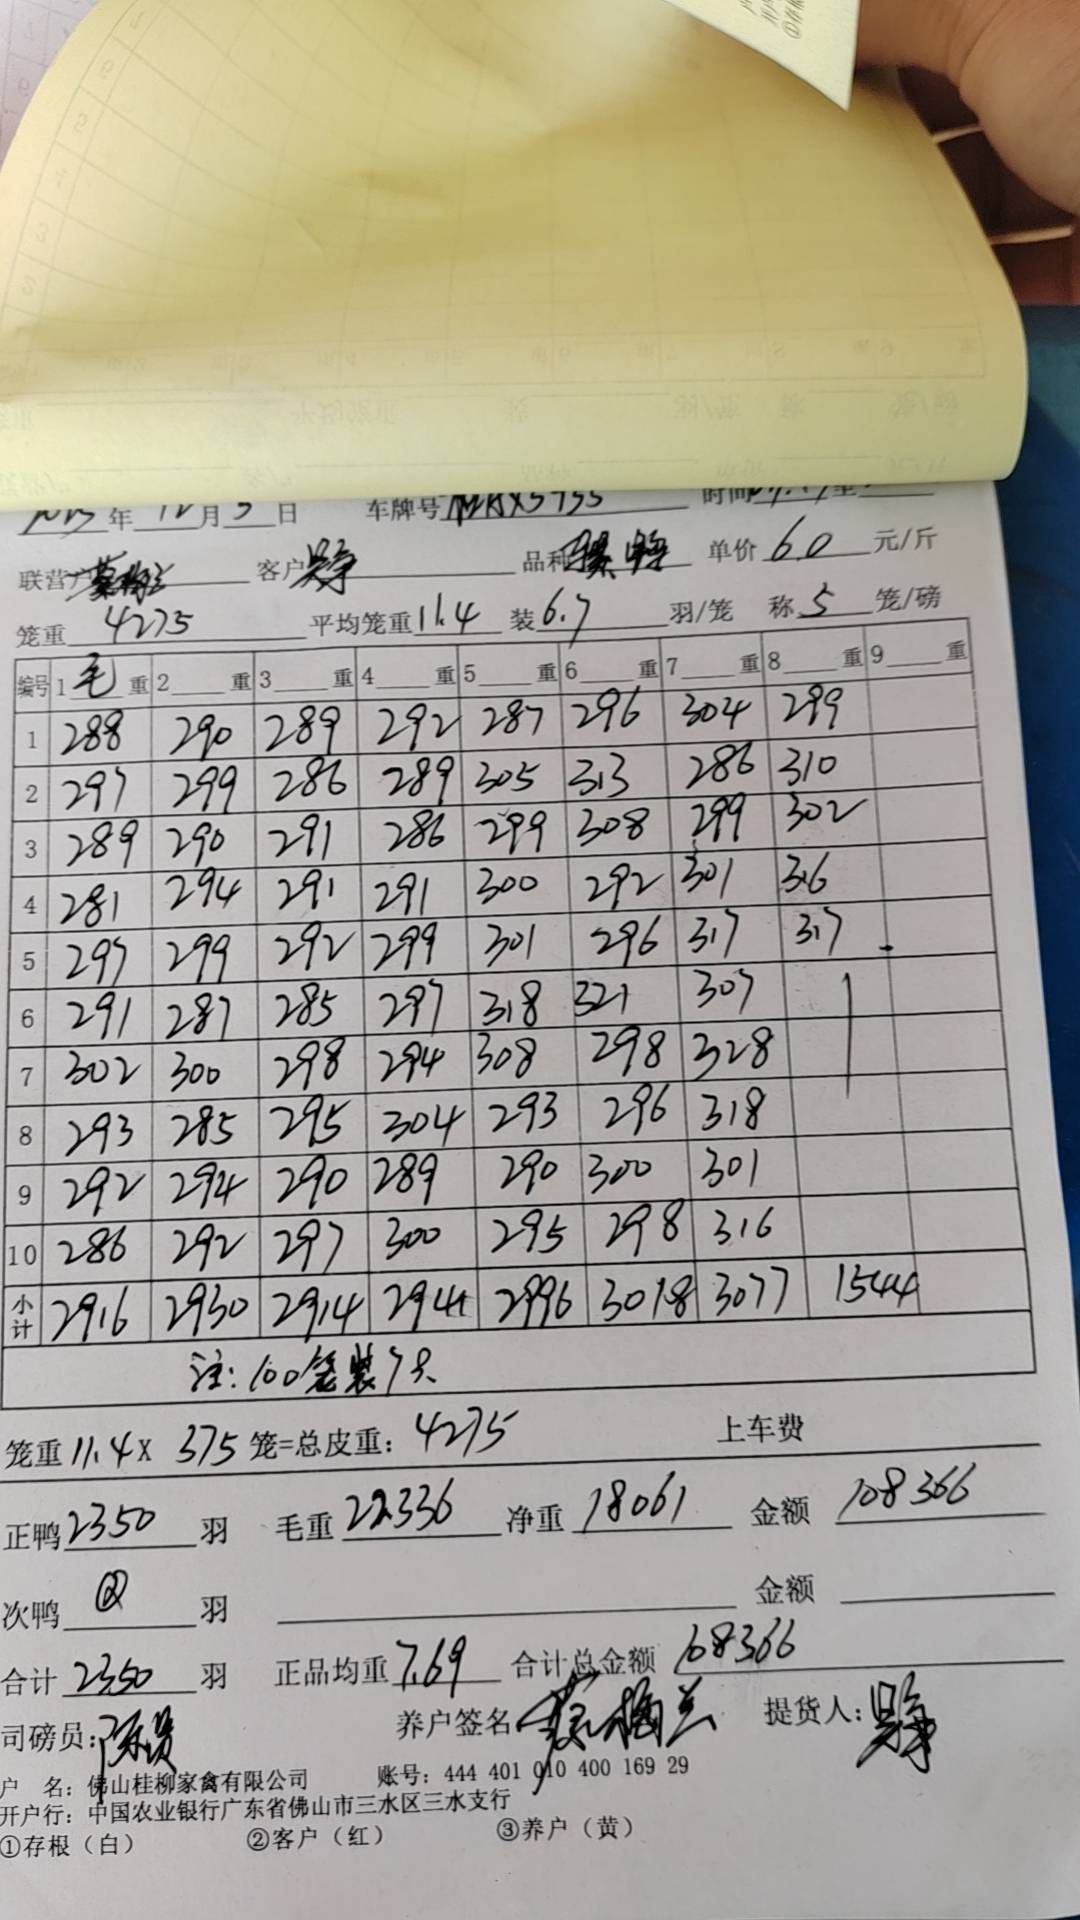 年12月3日 车牌号 时间 至
联营户 客户 品种 单价 6.0 元/斤
笼重 4275 平均笼重 11.4 装 6.7 羽/笼 称 5 笼/磅
编号 1 毛 重 2 重 3 重 4 重 5 重 6 重 7 重 8 重 9 重
1 288 290 289 292 287 296 304 299
2 297 299 286 289 305 313 286 310
3 289 290 291 286 299 308 299 302
4 281 294 291 291 300 292 301 316
5 297 299 292 299 301 296 317 317
6 291 287 285 297 318 321 307
7 302 300 298 294 308 298 328
8 293 285 295 304 293 296 318
9 292 294 290 289 290 300 301
10 286 292 297 300 295 298 316
小计 2916 2930 2914 2941 2996 3018 3077 1544
注:100笼装7只
笼重 11.4 X 375 笼=总皮重: 4275 上车费
正鸭 2350 羽 毛重 22336 净重 18061 金额 108366
次鸭 羽 金额
合计 2350 羽 正品均重 7.69 合计总金额 108366
司磅员: 养户签名 提货人:
户 名: 佛山桂柳家禽有限公司 账号: 444 401 010 400 169 29
开户行: 中国农业银行广东省佛山市三水区三水支行
①存根(白) ②客户(红) ③养户(黄)